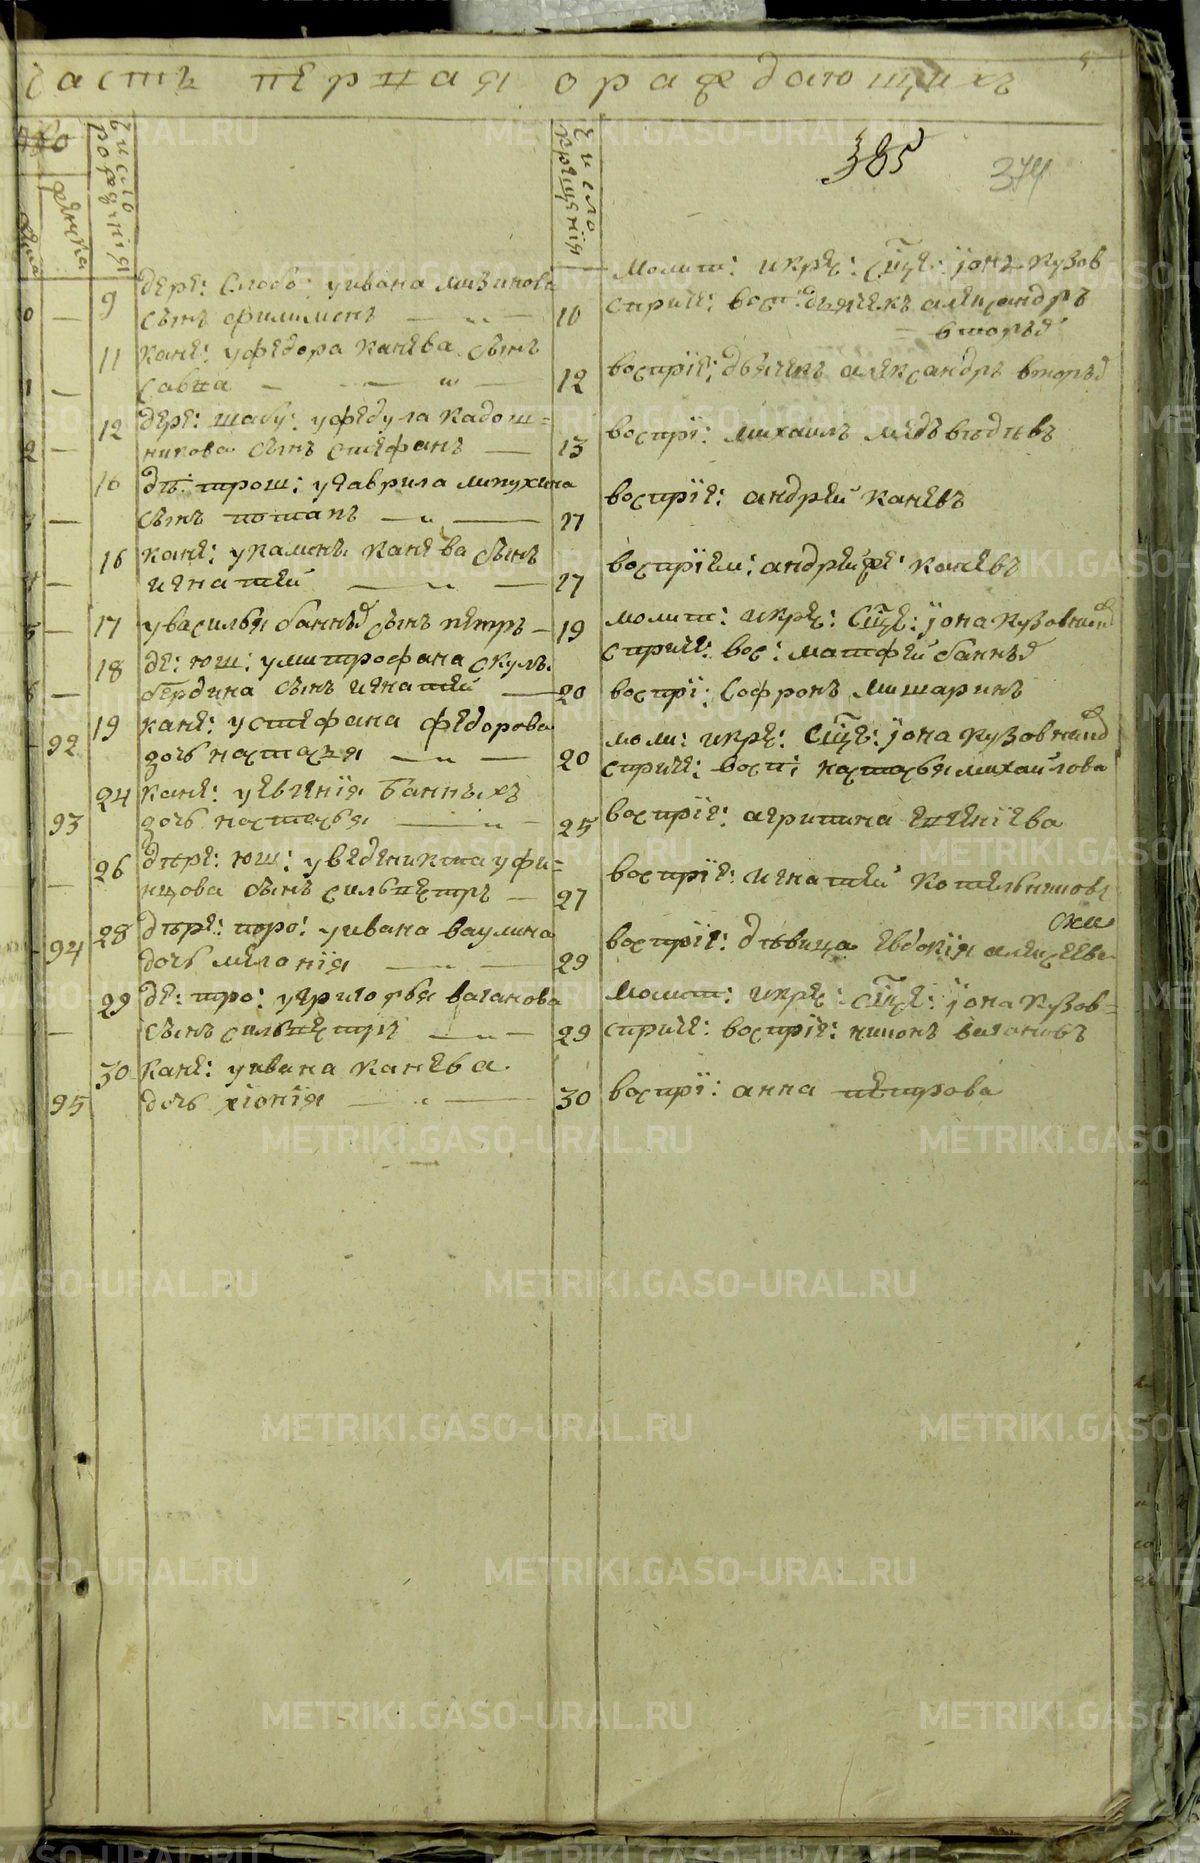 Часть первая о раждающихъ
385
374
Число рожденія
Число крещенія
дере: Слобо: у ивана мизинова
9
сынъ филимонъ
10
молит: и кре: Сще: їона Кузов
с приче: вос: дьячекъ александръ
вторы
11
кане: у федора канева сынъ
савва
12
воспріе: дьячекъ александръ вторы
12
дере: шабу: у федула кадош=
никова сынъ стефанъ
13
воспрі: михаилъ медведевъ
16
де: трош: у гаврила липухина
сынъ потапъ
17
воспріе: андрей каневъ
16
кане: у канева сынъ
игнатей
17
воспріем: андрей же каневъ
17
у василья банны сынъ петръ
19
молит: и кре: Сще: їона Кузовни
с приче: вос: матфей банны
18
де: юш: у митрофана скулъ
бердина сынъ игнатей
20
воспрі: Софронъ мишаринъ
92
19
кане: у стефана федорова
дочь настасья
20
моли: и кре: Сще: їона Кузовни
с приче: восп: настасья михайлова
93
24
кане: у евгенія банныхъ
дочь настасья
25
воспріе: агрипина евгеніева
26
дере: юш: у веденикта уфи=
нцова сынъ сильвестръ
27
воспріе: игнатей котельников
94
28
дере: тро: у ивана ваулина
дочь меланія
29
воспріе: девица евдокія алексеева
29
де: тро: у григорья ваганова
сынъ сильвестръ
29
молит: и кре: Сще: їона Кузов=
с приче: воспріе: никонъ вагановъ
95
30
кане: у ивана канева
дочь хіонія
30
воспрі: анна петрова
METRIKI.GASO-URAL.RU